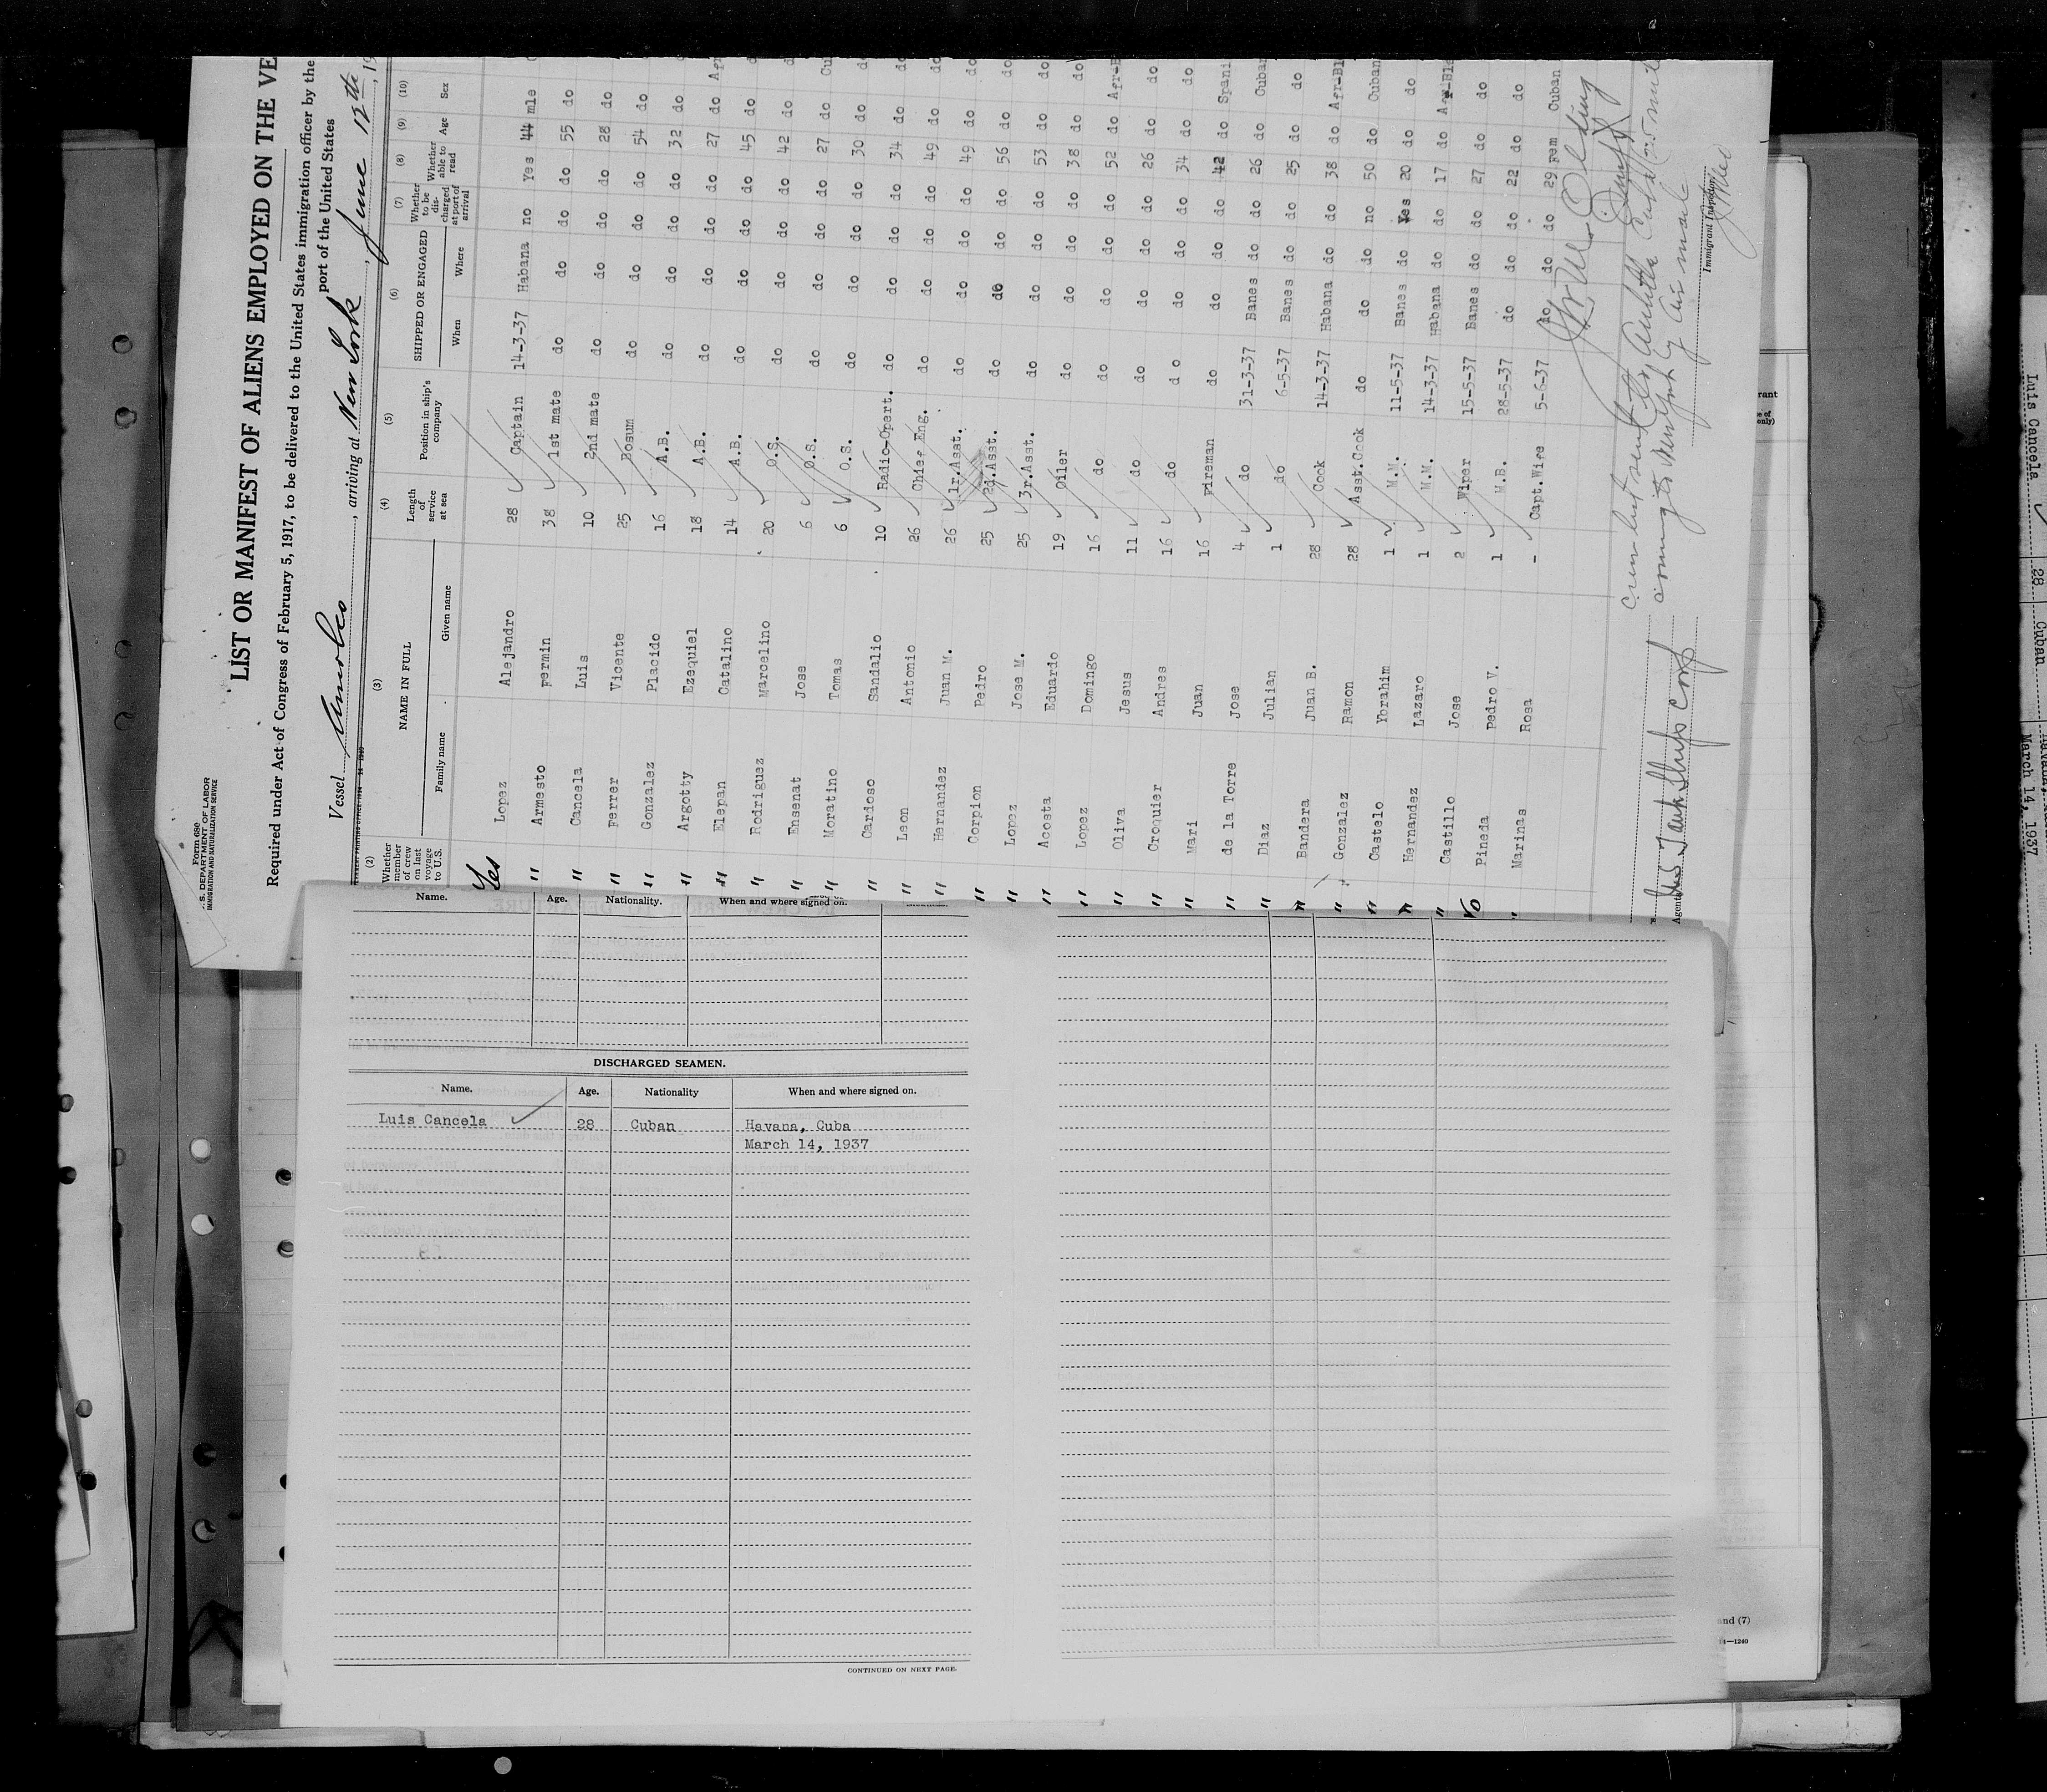 Form 680
U.S. DEPARTMENT OF LABOR
IMMIGRATION AND NATURALIZATION SERVICE
LIST OR MANIFEST OF ALIENS EMPLOYED ON THE VE
Required under Act of Congress of February 5, 1917, to be delivered to the United States immigration officer by the
port of the United States
Vessel , arriving at New York , June 12th , 19
(2) (3) (4) (5) (6) (7) (8) (9) (10)
Whether member of crew on last voyage to U.S. NAME IN FULL Length of service at sea Position in ship's company SHIPPED OR ENGAGED Whether to be discharged at port of arrival Whether able to read Age Sex
Family name Given name When Where
Yes Lopez Alejandro 28 Captain 14-3-37 Habana no Yes 44 mle
" Armesto Fermin 38 1st mate do do do do 55 do do
" Cancela Luis 10 2nd mate do do do do 28 do do
" Ferrer Vicente 25 Bosum do do do do 54 do do
" Gonzalez Placido 16 A.B. do do do do 32 do
" Argotty Ezequiel 18 A.B. do do do do 27 do Afr
" Elepan Catalino 14 A.B. do do do do 45 do
" Rodriguez Marcelino 20 O.S. do do do do 42 do
" Ensenat Jose 6 O.S. do do do do 27 do Cu
" Moratino Tomas 6 O.S. do do do do 30 do do
" Cardoso Sandalio 10 Radio-Opert. do do do do 34 do do
" Leon Antonio 26 Chief Eng. do do do do 49 do do
" Hernandez Juan M. 26 1r.Asst. do do do do 49 do do
" Corpion Pedro 25 2d.Asst. do do do do 56 do do
" Lopez Jose M. 25 3r.Asst. do do do do 53 do do
" Acosta Eduardo 19 Oiler do do do do 38 do do
" Lopez Domingo 16 do do do do do 52 do Afr-B
" Oliva Jesus 11 do do do do do 26 do do
" Croquier Andres 16 do do do do do 34 do do
" Mari Juan 16 Fireman do do do do 42 do Spani
" de la Torre Jose 4 do 31-3-37 Banes do do 26 do Cuban
" Diaz Julian 1 do 6-5-37 Banes do do 25 do do
" Bandera Juan B. 28 Cook 14-3-37 Habana do do 38 do Afr-Bl
" Gonzalez Ramon 28 Asst.Cook do do no do 50 do Cuban
" Castelo Ybrahim 1 M.M. 11-5-37 Banes do Yes 20 do do
" Hernandez Lazaro 1 M.M. 14-3-37 Habana do do 17 do Afr-Bla
" Castillo Jose 2 Wiper 15-5-37 Banes do do 27 do do
No Pineda Pedro V. 1 M.B. 28-5-37 do do do 22 do do
" Marinas Rosa - Capt.Wife 5-6-37 do do do 29 Fem Cuban
Crew list sent to
coming to Newport by air mail
Agents
Immigrant Inspector.
Name. Age. Nationality. When and where signed on.
DISCHARGED SEAMEN.
Name. Age. Nationality When and where signed on.
Luis Cancela 28 Cuban Havana, Cuba
March 14, 1937
CONTINUED ON NEXT PAGE.
and (7)
14—1240
Luis Cancela 28 Cuban
March 14, 1937